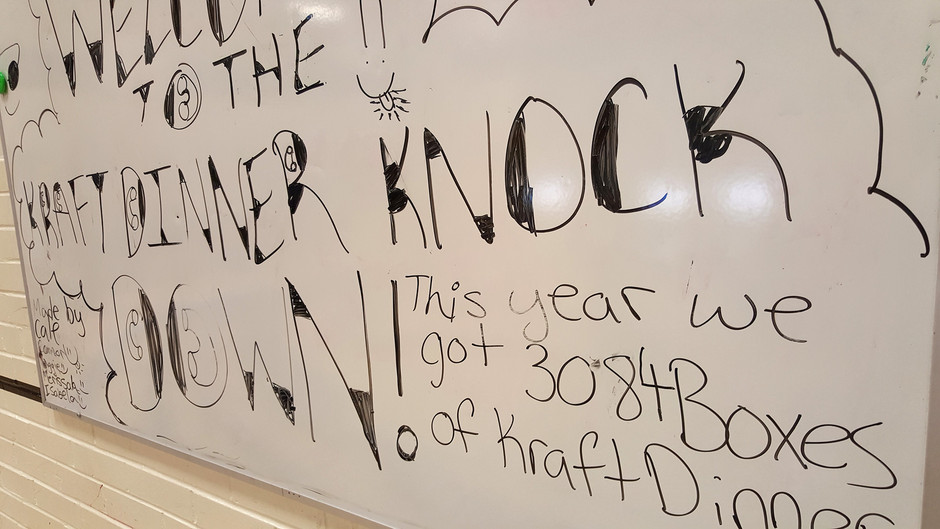 WELCO
TO THE
KRAFT DINNER KNOCK
DOWN!
This year we
got 3084 Boxes
of Kraft Dinner
Made by
Isabella